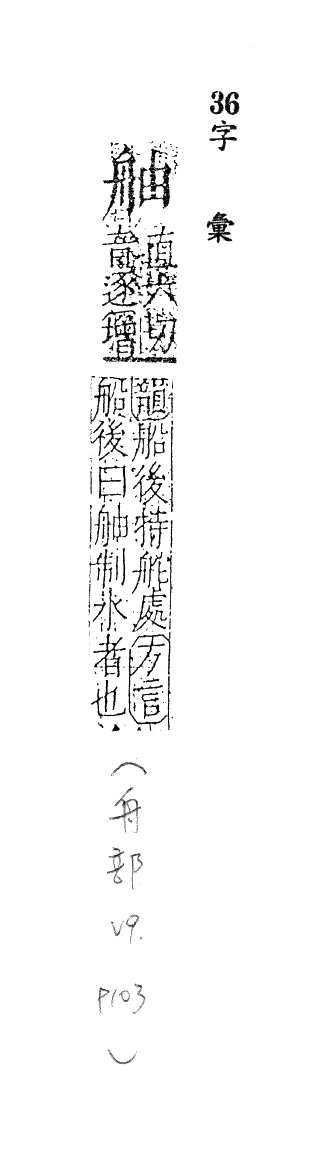 36字彙
舳
直六切
音逐增
韻船後持舵處方言
船後曰舳制水者也
(舟部 V9. P103)